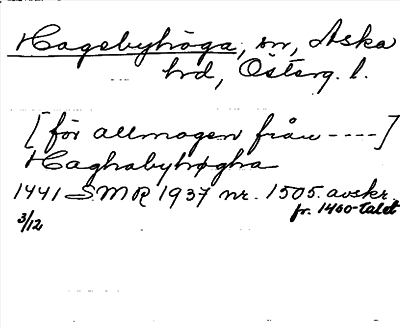 Hagebyhöga, sn, Aska
hrd, Österg. l.
[för allmogen från ----]
Haghabyhøgha
1441 SMR 1937 nr. 1505. avskr.
fr. 1400-talet
3/12